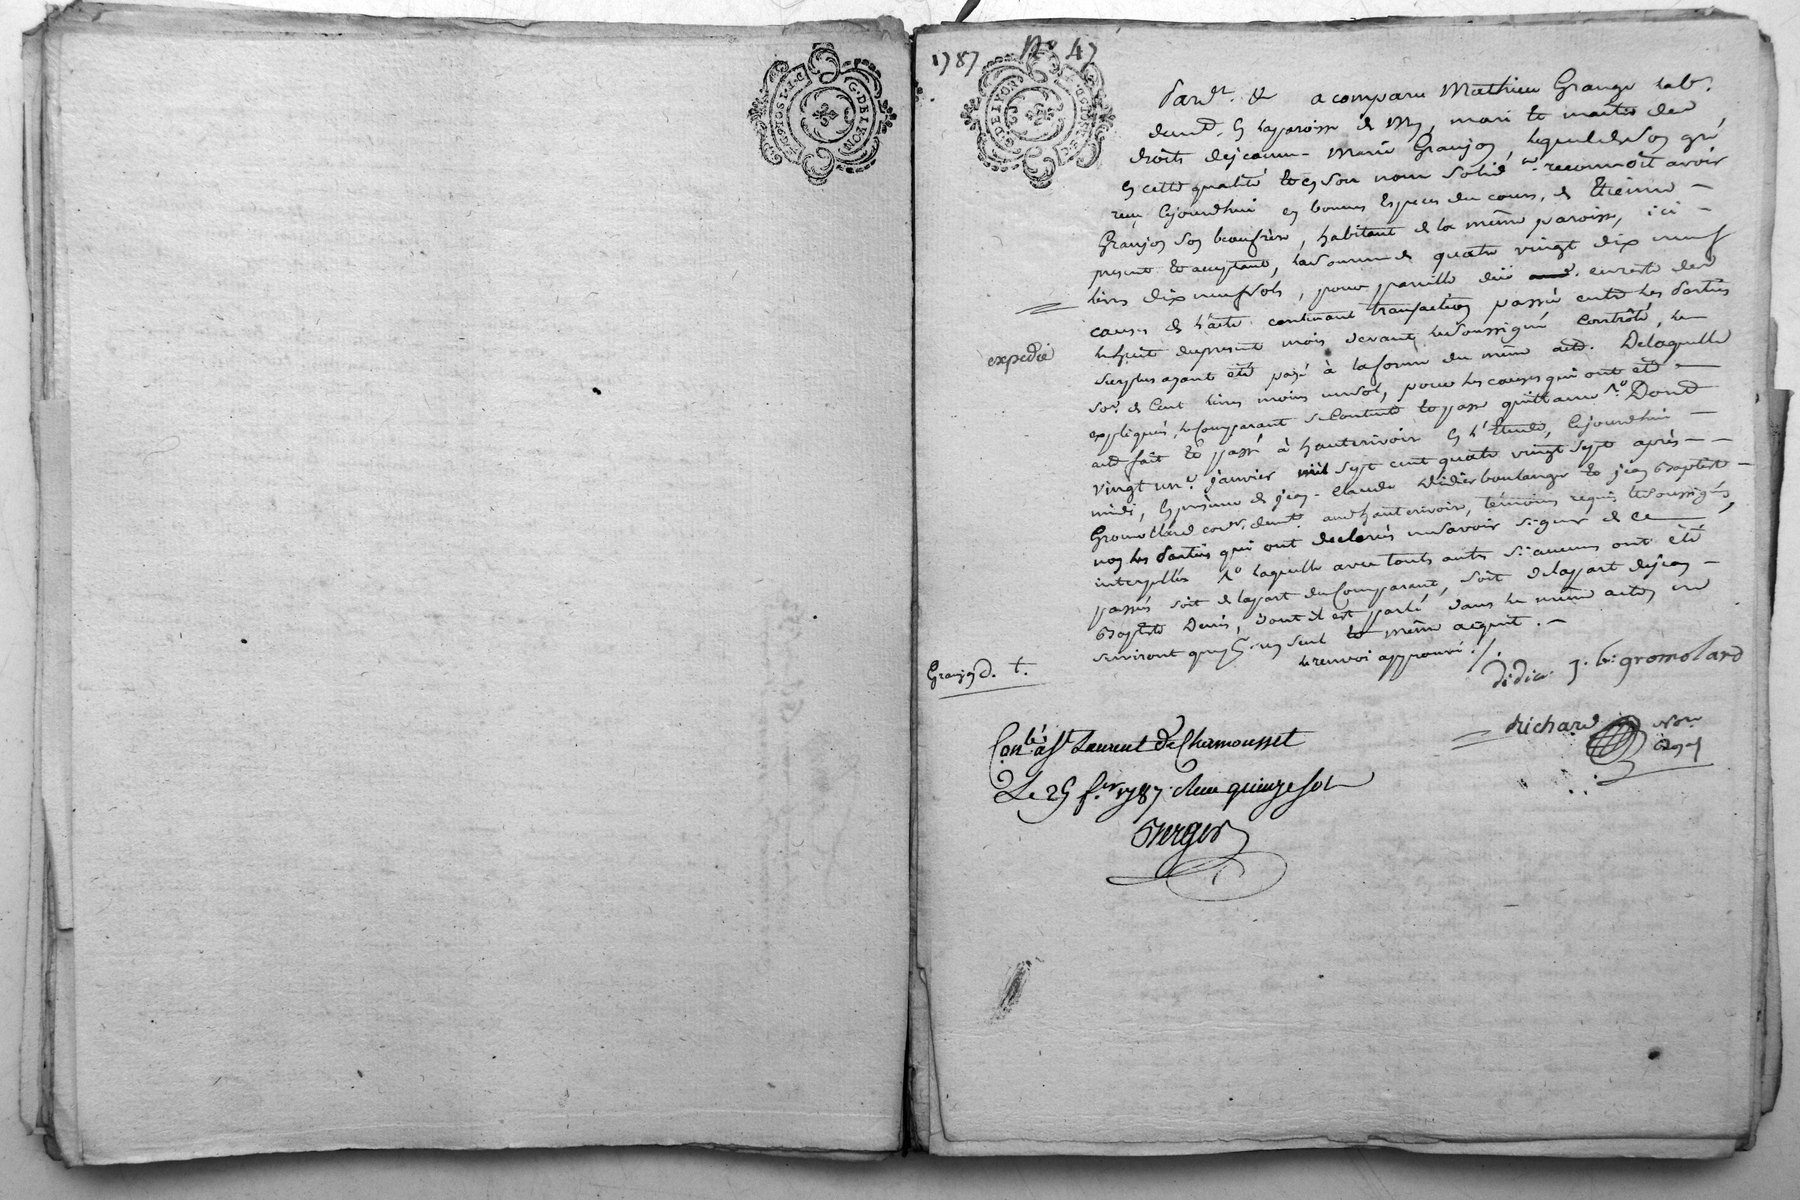 G. DE LYON
1787 No 47
G. DE LYON
Pardt. & a comparu Mathieu Grange lab.
demt. en laparoisse de My, mari & maitre des
droits dejeanne-Marie Granjon, lequel deson gré
en cette qualité & en son nom solid. reconnoit avoir
reçu cejourdhui en bonnes Especes du cours, de Etienne
Granjon son beaufrère, habitant de la même paroisse, ici
present & acceptant, lasomme de quatre vingt dix neuf
livres dix neuf sols, pour pareille düe en reste des
causes de l'acte contenant transaction passée entre les Parties
lehuit dupresent mois devant lesoussigné Contrôlé, le
surplus ayant été payé à laforme du même acte. Delaquelle
so. de Cent livres moins unsol, pour les causes qui ont été
expliquées, leComparant seContente & passe quittance. Dont
acte fait & passé à hauterivoire en l'Etude, cejourdhui
vingt un janvier mil sept cent quatre vingt sept après
midi, en présence de jean-Claude Didier boulanger & jean Baptiste
Gromollard cordr. demt. aud hauterivoire, témoins requis & soussignés
non les Parties qui ont déclarés nesavoir signer de ce
interpellés laquelle avec touts autres si aucuns ont été
passés soit de lapart duComparant, soit delapart dejean
Baptiste Denis, dont il est parlé dans le même acte, ne
serviront que d'un seul & même acquit.
lerenvoi approuvé
expedié
Granjon d. t.
didier J. b. gromolard
Richard Nore
Conlé à St Laurent de Chamousset
Le 25 fer 1787. Reçu quinze sol
Berger